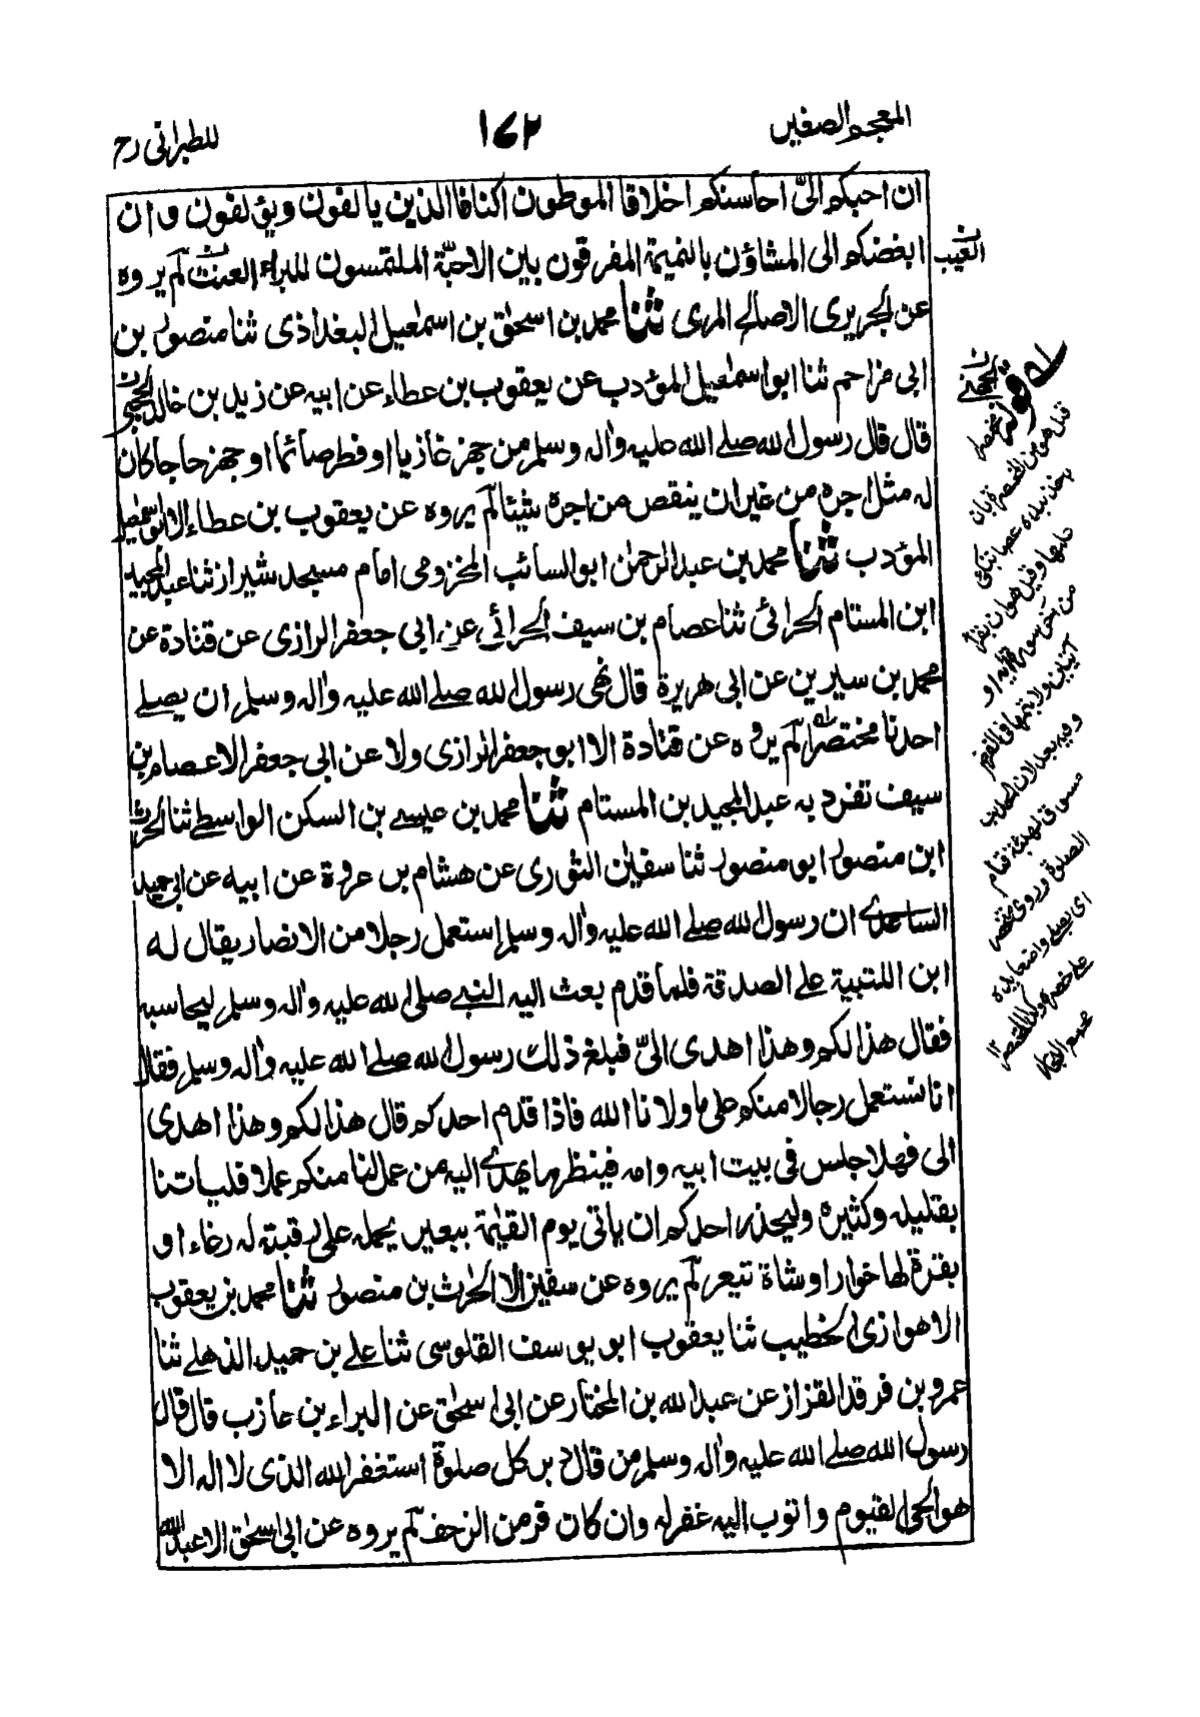 المعجم الصغير
١٧٢
للطبراني رح
ان احبكم الىّ احاسنكم اخلاقا الموطون اكنافا الذين يالفون ويؤلفون وان
ابغضكم الى المشاؤن بالنميمة المفرقون بين الاحبّة الملتمسون للبراء العنت لم يروه
عن الجريرى الا صالح المرى ثنا محمد بن اسحٰق بن اسمٰعيل البغداذى ثنا منصور بن
ابى مزاحم ثنا ابو اسمٰعيل المؤدب عن يعقوب بن عطاء عن ابيه عن زيد بن خالد الجهنى
قال قال رسول الله صلے الله عليه واٰله وسلم من جهز غازيا او فطر صائما او جهز حاجا كان
له مثل اجره من غير ان ينقص من اجره شيئا لم يروه عن يعقوب بن عطاء الا ابو اسمٰعيل
المؤدب ثنا محمد بن عبد الرحمٰن ابو السائب المخزومى امام مسجد شيراز ثنا عبد المجيد
ابن المستام الحرانى ثنا عصام بن سيف الحرانى عن ابى جعفر الرازى عن قتادة عن
محمد بن سيرين عن ابى هريرة قال نهى رسول الله صلے الله عليه واٰله وسلم ان يصلے
احدنا مختصرا لم يروه عن قتادة الا ابو جعفر الرازى ولا عن ابى جعفر الا عصام بن
سيف تفرد به عبد المجيد بن المستام ثنا محمد بن عيسے بن السكن الواسطے ثنا الحرث
ابن منصور ابو منصور ثنا سفيٰن الثورى عن هشام بن عروة عن ابيه عن ابى حميد
الساعدے ان رسول الله صلے الله عليه واٰله وسلم استعمل رجلا من الانصار يقال له
ابن اللتبية علے الصدقة فلما قدم بعث اليه النبے صلى الله عليه واٰله وسلم ليحاسبه
فقال هذا لكم وهذا اهدى الىّ فبلغ ذلك رسول الله صلے الله عليه واٰله وسلم فقال
انا نستعمل رجالا منكم على ما ولانا الله فاذا قدم احدكم قال هذا لكم وهذا اهدى
الى فهلا جلس فى بيت ابيه وامه فينظر ما يهدے اليه من عمل لنا منكم عملا فلياتنا
بقليله وكثيره وليحذر احدكم ان ياتى يوم القيٰمة ببعير يحمله على رقبته له رغاء او
بقرة لها خوار او شاة تيعر لم يروه عن سفيٰن الا الحٰرث بن منصور ثنا محمد بن يعقوب
الاهوازى الخطيب ثنا يعقوب ابو يوسف القلوسى ثنا علے بن حميد الذهلے ثنا
عمرو بن فرقد القزاز عن عبد الله بن المختار عن ابى اسحٰق عن البراء بن عازب قال قال
رسول الله صلے الله عليه واٰله وسلم من قال دبر كل صلوة استغفر الله الذى لا اله الا
هو الحى القيوم واتوب اليه غفر له وان كان فر من الزحف لم يروه عن ابى اسحٰق الا عبد الله
العيب
له قوله مختصرا
قيل هو من المخصرة بان
ياخذ بيده عصا يتكئ
عليها وقيل هو ان يقرأ
من آخر سورة آية او
آيتين ولا يتمها فى الفرض